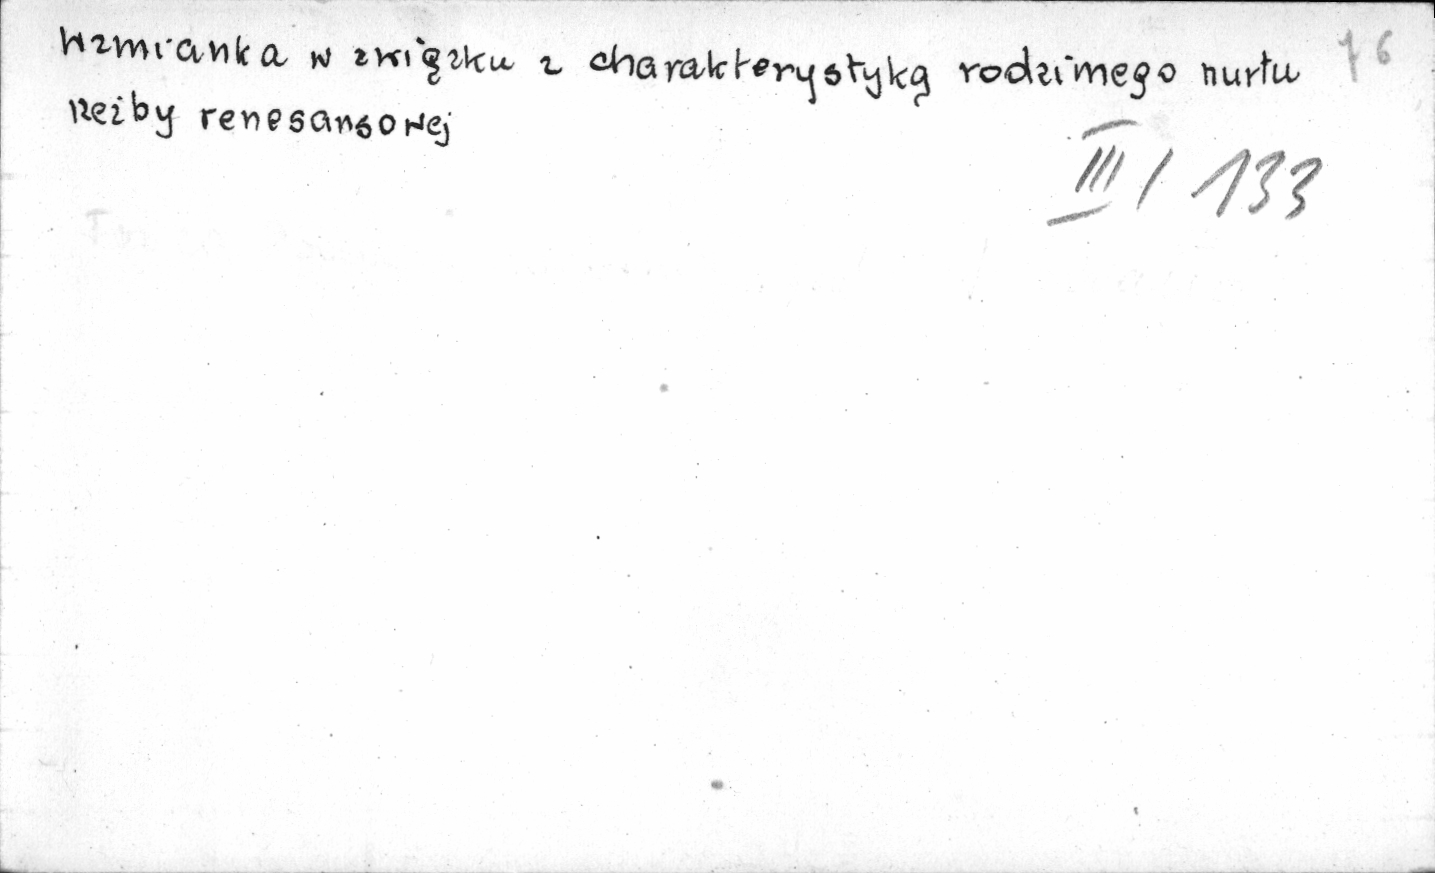 Wzmianka w związku z charakterystyką rodzimego nurtu 76
rzeźby renesansowej
III / 133